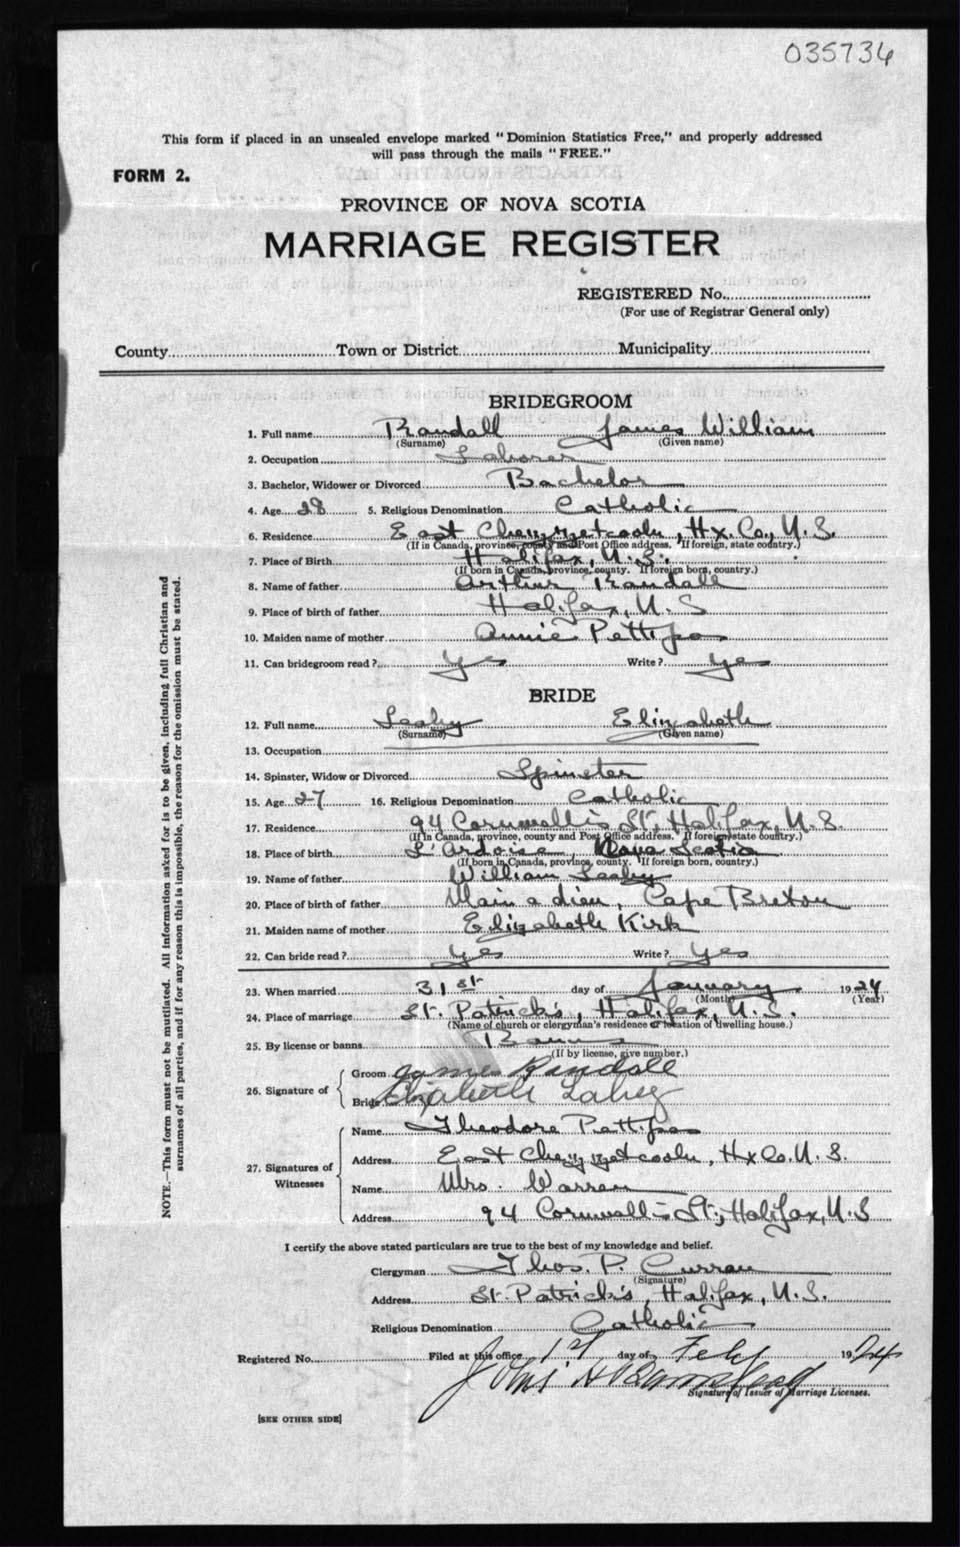 035734
This form if placed in an unsealed envelope marked "Dominion Statistics Free," and properly addressed
will pass through the mails "FREE."
FORM 2.
PROVINCE OF NOVA SCOTIA
MARRIAGE REGISTER
REGISTERED No.
(For use of Registrar General only)
County Town or District Municipality
BRIDEGROOM
1. Full name Randall James William
(Surname) (Given name)
2. Occupation Laborer
3. Bachelor, Widower or Divorced Bachelor
4. Age 28 5. Religious Denomination Catholic
6. Residence East Chezzetcook, Hx. Co., N.S.
(If in Canada, province, county and Post Office address. If foreign, state country.)
7. Place of Birth Halifax, N.S.
(If born in Canada, province, county. If foreign born, country.)
8. Name of father Arthur Randall
9. Place of birth of father Halifax, N.S
10. Maiden name of mother Annie Pettipas
11. Can bridegroom read? Yes Write? Yes
BRIDE
12. Full name Leahy Elizabeth
(Surname) (Given name)
13. Occupation
14. Spinster, Widow or Divorced Spinster
15. Age 27 16. Religious Denomination Catholic
17. Residence 94 Cornwallis St, Halifax, N.S.
(If in Canada, province, county and Post Office address. If foreign state country.)
18. Place of birth L'Ardoise, Nova Scotia
(If born in Canada, province, county. If foreign born, country.)
19. Name of father William Leahy
20. Place of birth of father Main a dieu, Cape Breton
21. Maiden name of mother Elizabeth Kirk
22. Can bride read? Yes Write? Yes
23. When married 31st day of January 1924
(Month) (Year)
24. Place of marriage St. Patrick's, Halifax, N.S.
(Name of church or clergyman's residence or location of dwelling house.)
25. By license or banns Banns
(If by license, give number.)
26. Signature of Groom James Randall
Bride Elizabeth Lahey
27. Signatures of Witnesses Name Theodore Pettipas
Address East Chezzetcook, Hx Co. N.S.
Name Mrs. Warren
Address 94 Cornwallis St., Halifax, N.S
I certify the above stated particulars are true to the best of my knowledge and belief.
Clergyman Thos. P. Curran
(Signature)
Address St. Patrick's, Halifax, N.S.
Religious Denomination Catholic
Registered No. Filed at this office 1st day of Feb 1924
John
Signature of Issuer of Marriage Licenses.
[SEE OTHER SIDE]
NOTE.—This form must not be mutilated. All information asked for is to be given, including full Christian and
surnames of all parties, and if for any reason this is impossible, the reason for the omission must be stated.